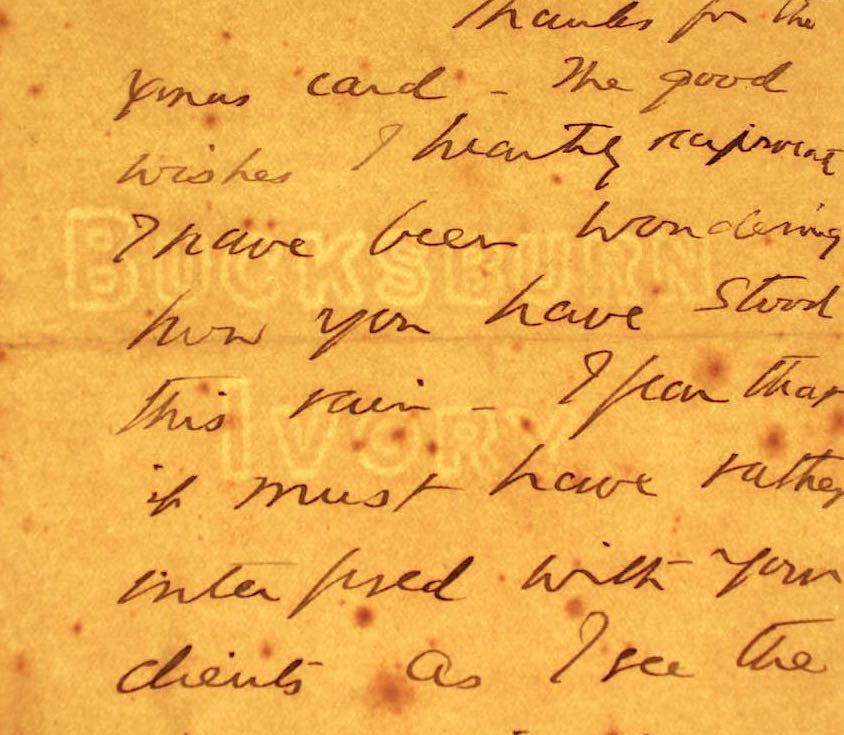 Thanks for the
Xmas card - The good
wishes I heartily reciprocate
I have been wondering
BUCKSBURN
how you have stood
this rain - I fear that
IVORY
it must have rather
interfered with your
clients as I see the